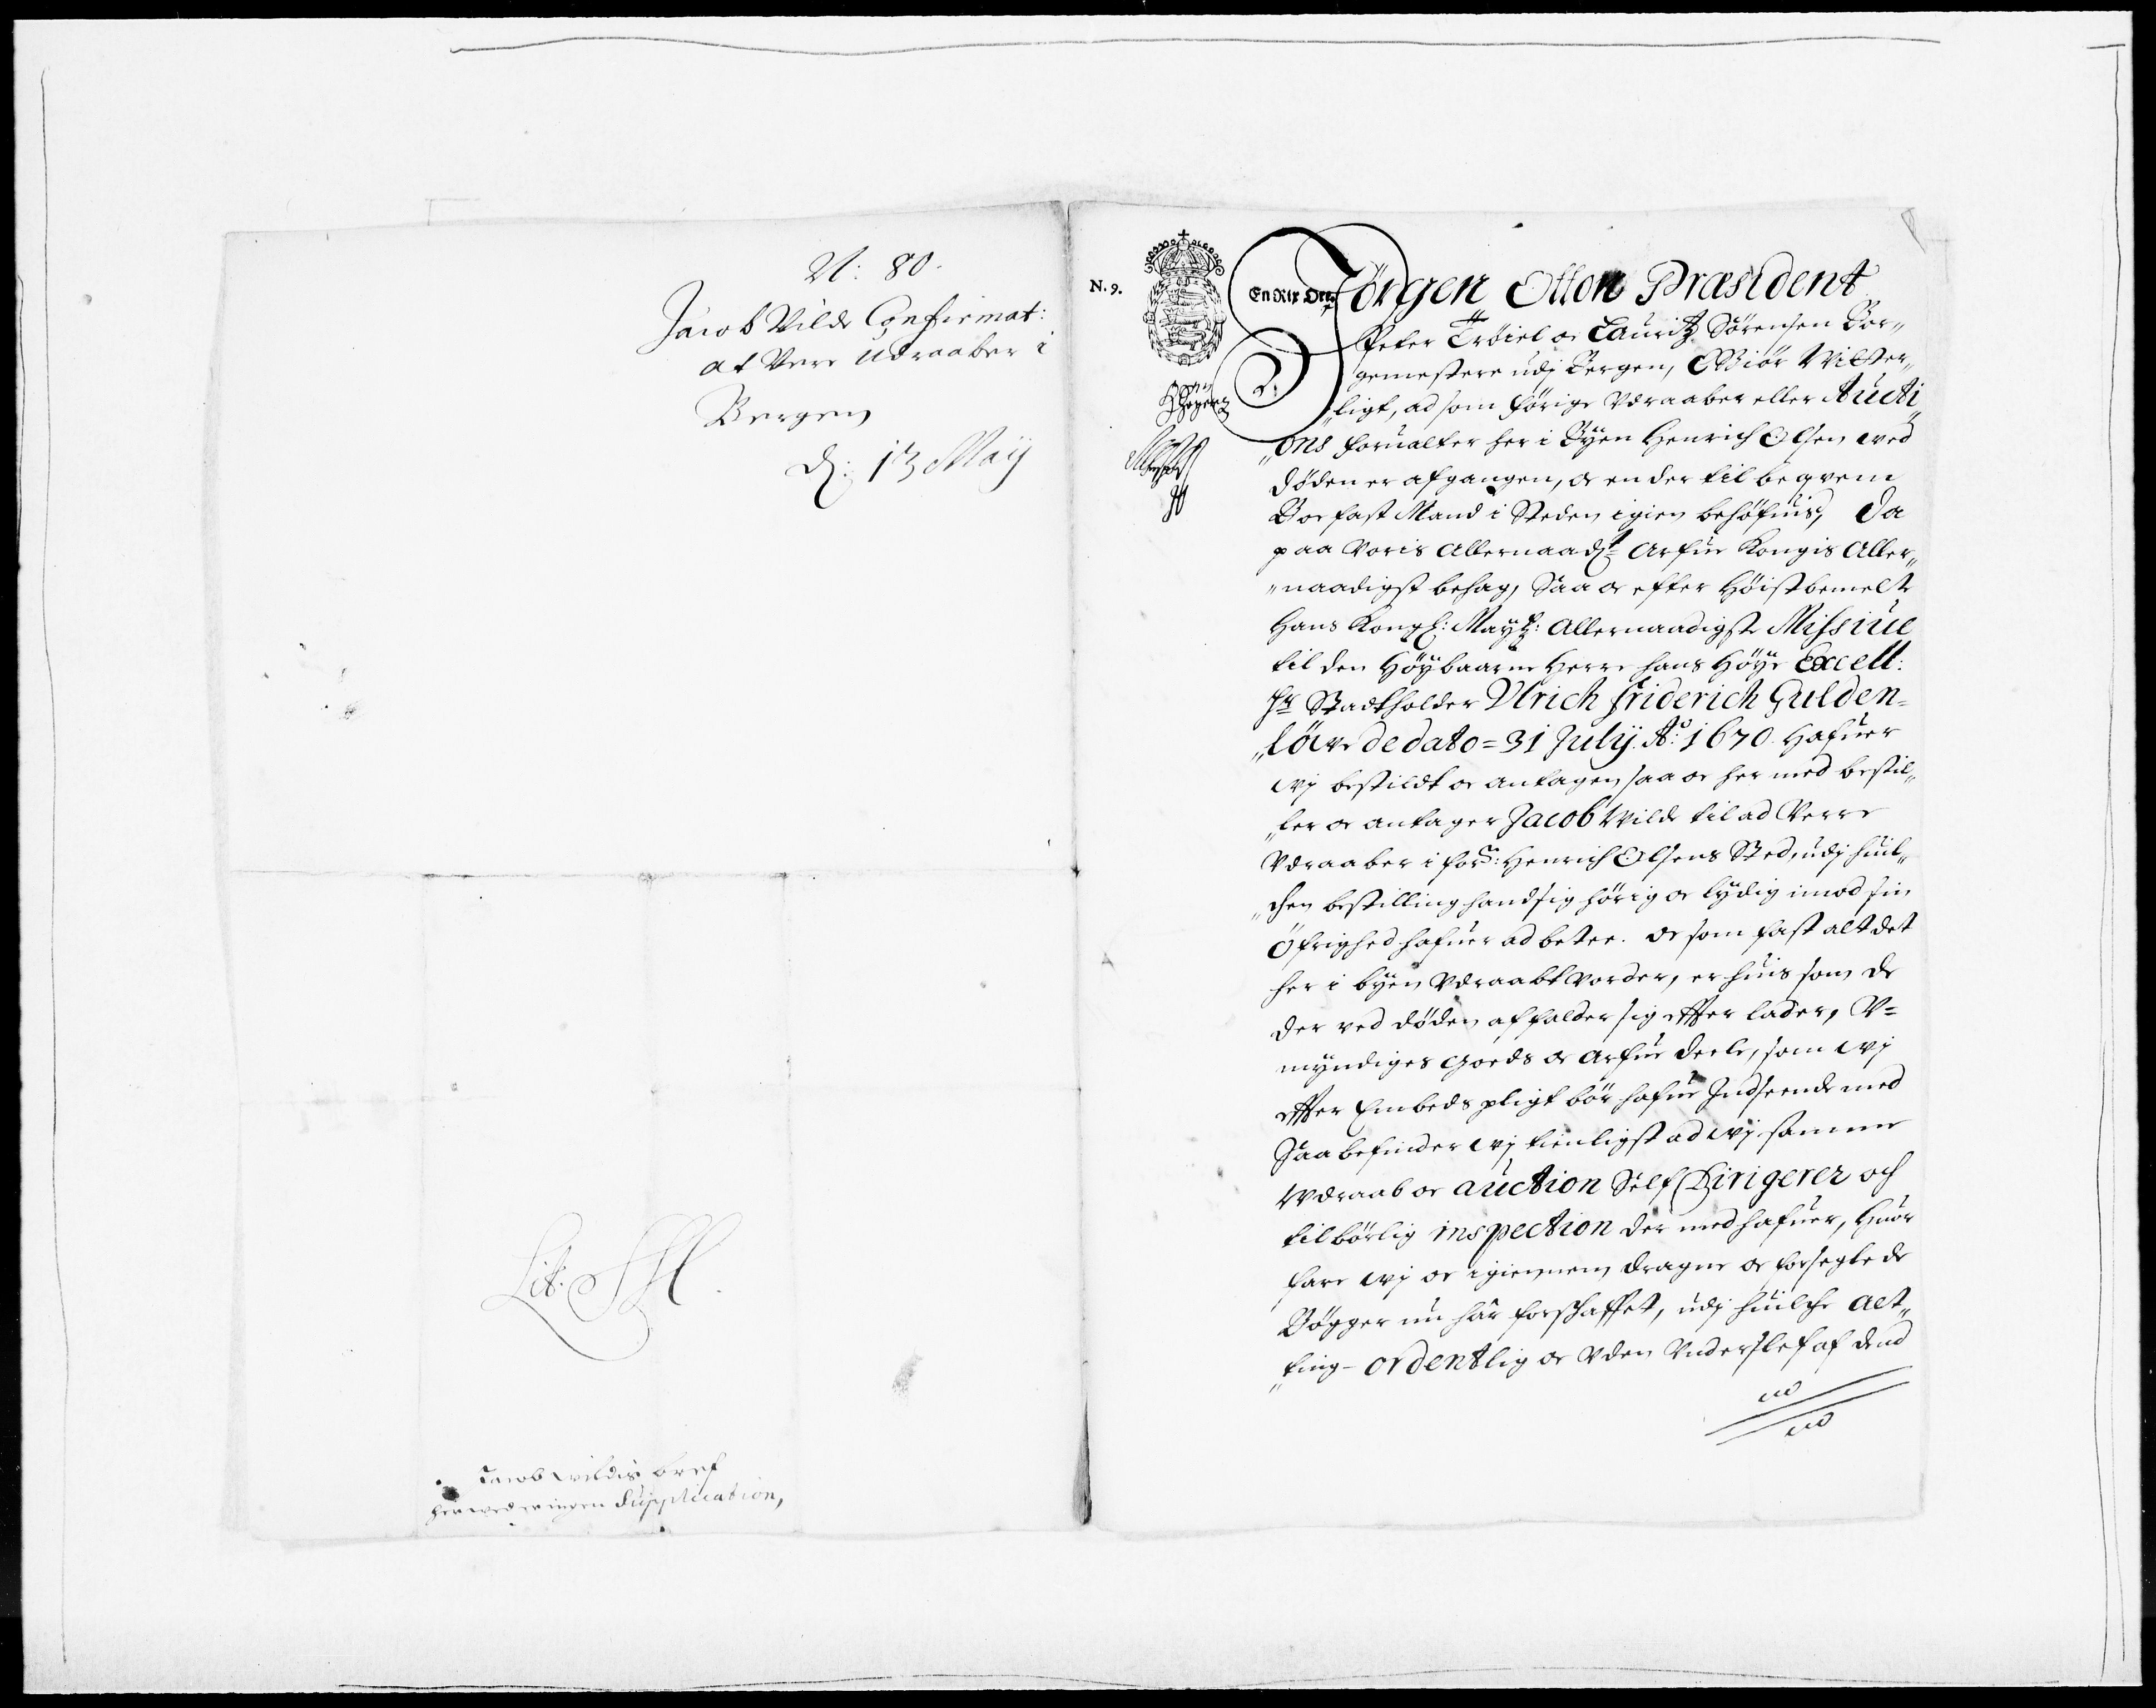 N: 80.
Jacob Wilds Confirmat:
at Vere Udraaber i
Bergen
d: 13 Maij
Lit: H.
Jacob Wildis bref
herved ingen Supplication,
N. 9.
En Rix Ort
2.
Jörgen Otton Præsident
Peter Tröiel oc Lauritz Sörensen Bor„
gemestere udj Bergen, Giör Witter„
„ligt, ad som förige Vdraaber eller Aucti
„ons forualter her i Byen Henrich Olsen ved
döden er afgangen, oc en der til beqvem
Boefast Mand i Steden igien behöfuis, Da
paa Voris Allernaadst= Arfue Kongis Aller„
„naadigst behag, Saa oc efter Höistbemelte
Hans Kongl: Maytz: Allernaadigste Missiue
til den Höybaarne Herre hans Höye Excell:
Hr Stadtholder Vlrich Friderich Gulden=
„löwe de dato = 31 Julij. Ao: 1670. Hafuer
wj bestildt oc antagen, saa oc her med bestil„
„ler oc antager Jacob Wilde til ad Verre
Vdraaber i fors: Henrich Olsens Sted, udj huil„
„chen bestilling hand sig hörig oc lydig imod sin
Öfrighed hafuer ad betee. Oc som fast alt det
her i byen Vdraabt vorder, er huis som de
der ved döden affalder sig effter lader, V=
myndiges Goeds oc Arfue deele, som wj
effter Embeds pligt bör hafue Indseende med
Saa befinder wj tienligst ad wj samme
Vdraab oc auction Self Dirigerer och
tilbörlig inspection der med hafuer, Huor
fore wj oc igiennem dragne oc forseglede
Bögger nu har forschaffet, udj huilche Alt„
„ting - ordentlig oc Vden Vnderslef af dend